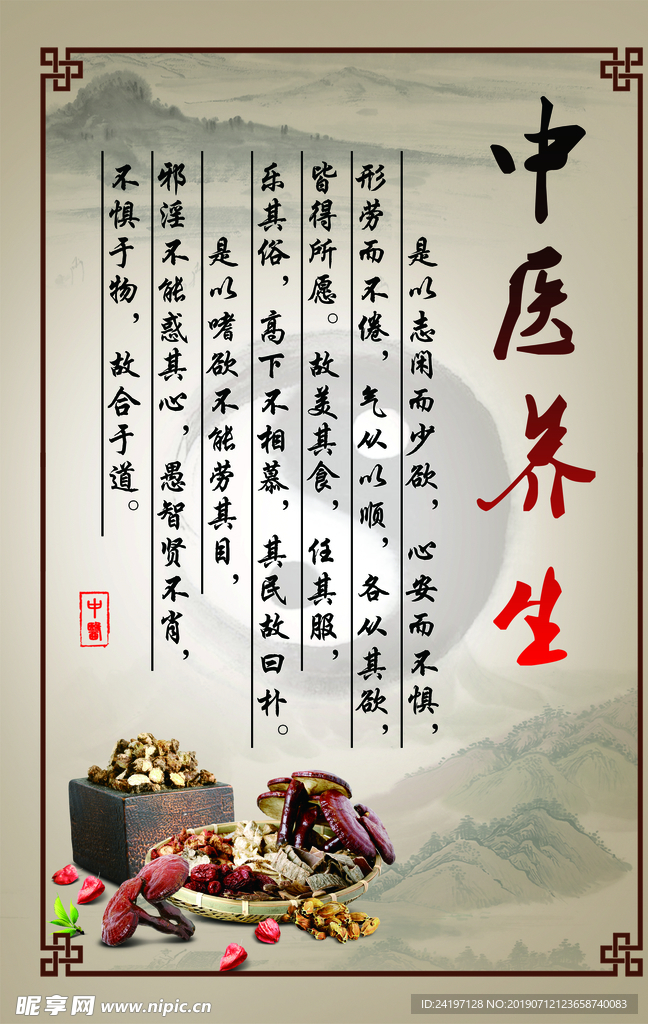 中医养生
是以志闲而少欲，心安而不惧，
形劳而不倦，气从以顺，各从其欲，
皆得所愿。故美其食，任其服，
乐其俗，高下不相慕，其民故曰朴。
是以嗜欲不能劳其目，
邪淫不能惑其心，愚智贤不肖，
不惧于物，故合于道。
中醫
昵享网 www.nipic.cn
ID:24197128 NO:20190712123658740083